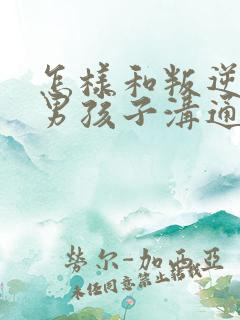 怎樣和叛逆
男孩子溝通
勞尔-加西亞
未任同意禁止轉載